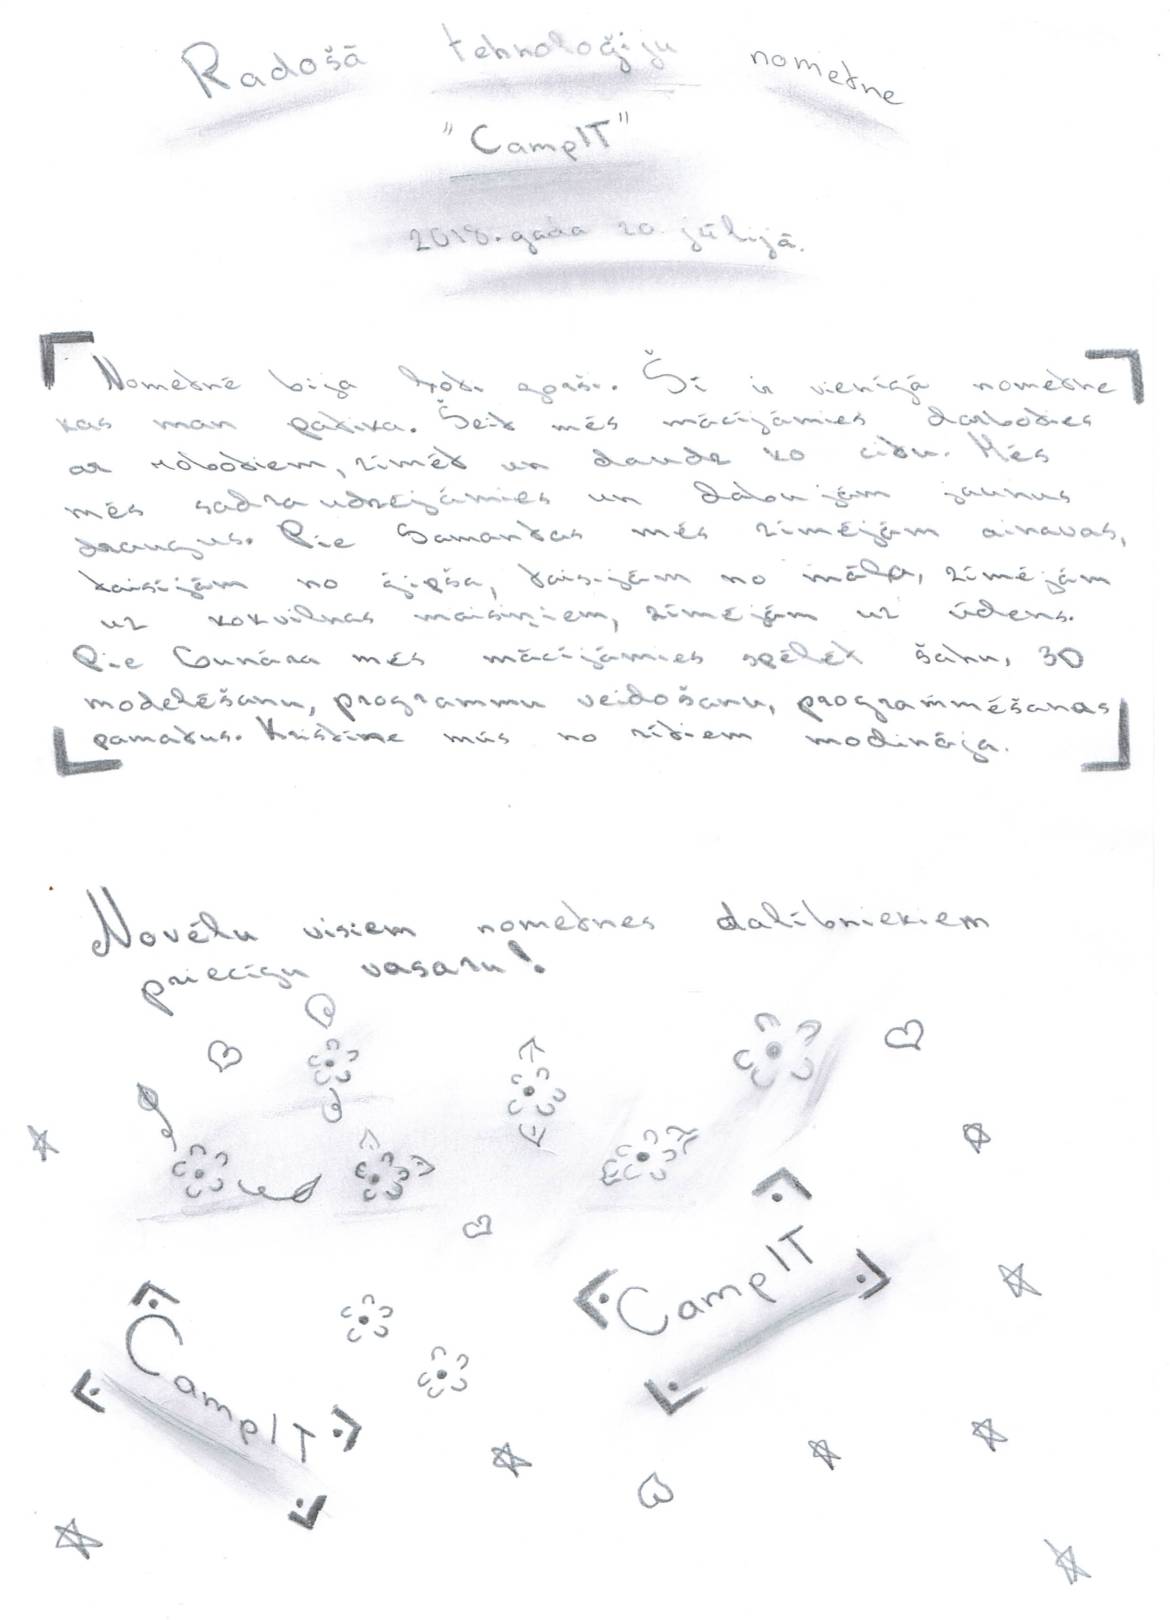 Radošā tehnoloģiju nometne
"CampIT"
2018. gada 20. jūlijā.
Nometnē bija ļoti forši. Šī ir vienīgā nometne
kas man patika. Šeit mēs mācījāmies darboties
ar robotiem, zīmēt un daudz ko citu. Mēs
mēs sadraudzējāmies un dabūjām jaunus
draugus. Pie Samantas mēs zīmējām ainavas,
taisījām no ģipša, taisījām no māla, zīmējām
uz kokvilnas maisiņiem, zīmējām uz ūdens.
Pie Gunāra mēs mācījāmies spēlēt šahu, 3D
modelēšanu, programmu veidošanu, programmēšanas
pamatus. Kristīne mūs no rītiem modināja.
Novēlu visiem nometnes dalībniekiem
priecīgu vasaru!
CampIT
CampIT